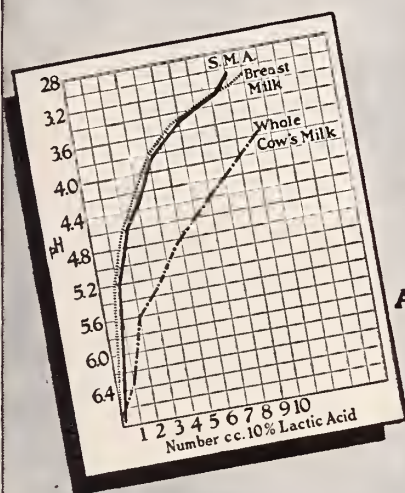 S.M.A.
Breast
Milk
Whole
Cow's Milk
2.8
3.2
3.6
4.0
4.4
pH
4.8
5.2
5.6
6.0
6.4
1 2 3 4 5 6 7 8 9 10
Number c c. 10% Lactic Acid
A